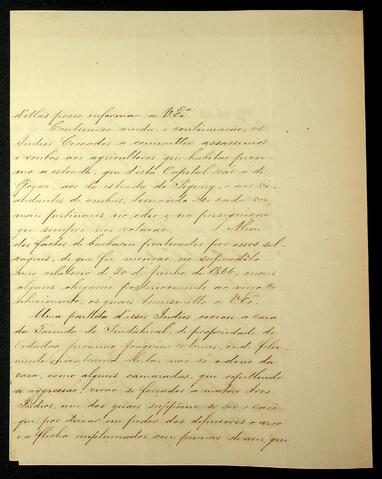 d'ellas posso informar a V. Exª
Continuão ainda, e continuarão, os
Indios Coroados a commetter assassinos
e roubos aos agricultores que habitão proxi-
mo a estrada, que desta Capital vae a de
Goyaz, aos da estrada do Piquiry, e aos vi-
andantes de ambas, tornando-se cada vez
mais pertinazes no odio, e na perseguição
que sempre nos votarão. Alem
dos factos de barbaria praticados por esses sel-
vagens, de que fiz menção no supradito
meu relatorio de 20 de Junho de 1866, mais
alguns chegarão posteriormente ao meu co-
nhecimento, os quaes transmitto a V. Exª.
Uma partida d'esses Indios, cercou a casa
da Fazenda do Jindahival, de propriedade do
Cidadão Jeronimo Joaquim, onde feliz-
mente achavão-se não só o dono da
casa, como alguns camaradas, que repellindo
a aggressão, virão-se forçados a matar tres
Indios, um dos quaes suppõem-se ser o caci-
que, por deixar em poder dos defensores o arco
e a flecha emplumados com pennas de aves, que